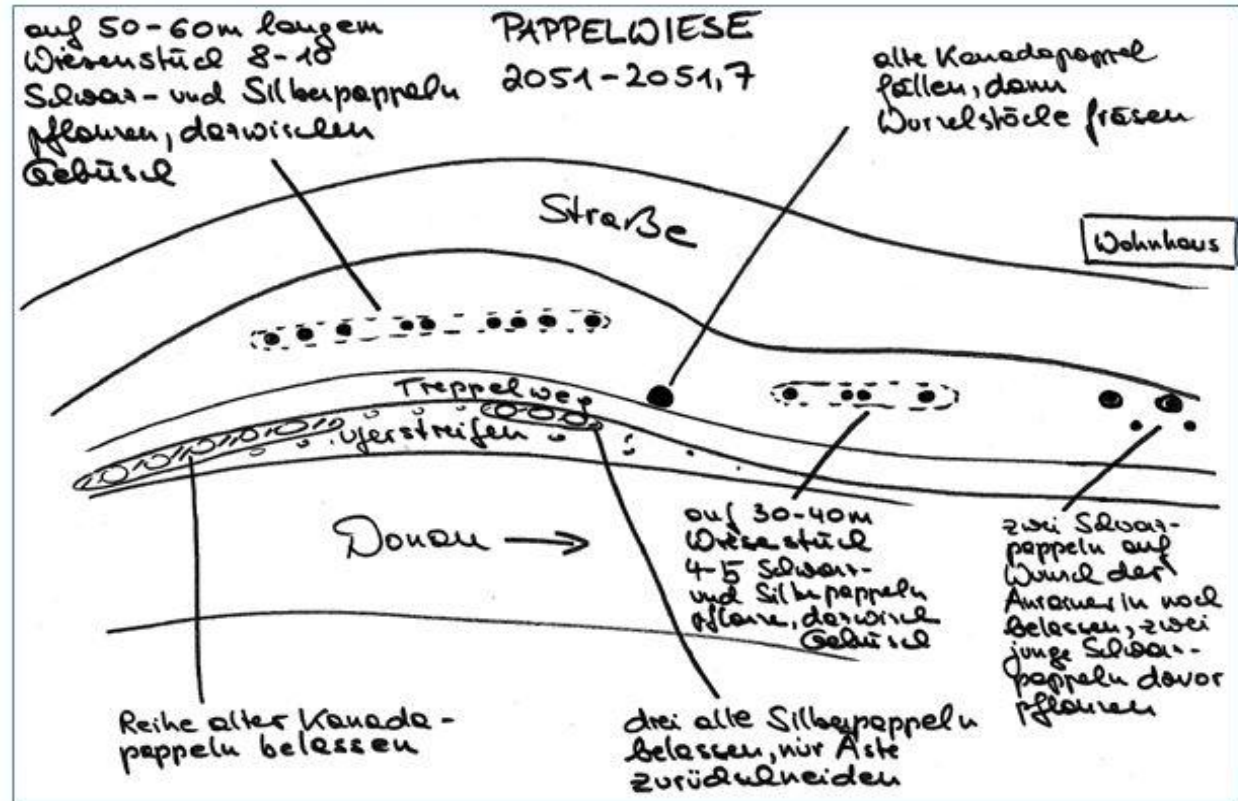 auf 50-60m langem
Wiesenstück 8-10
Schwarz- und Silberpappeln
pflanzen, dazwischen
Gebüsch
PAPPELWIESE
2051-2051,7
alte Kanadapappel
fällen, dann
Wurzelstöcke fräsen
Straße
Wohnhaus
Treppelweg
Uferstreifen
Donau
auf 30-40m
Wiesestück
4-5 Schwarz-
und Silberpappeln
pflanze, dazwisch
Gebüsch
zwei Schwarz-
pappeln auf
Wunsch der
Anrainerin noch
belassen, zwei
junge Schwarz-
pappeln davor
pflanzen
Reihe alter Kanada-
pappeln belassen
drei alte Silberpappeln
belassen, nur Äste
zurückschneiden